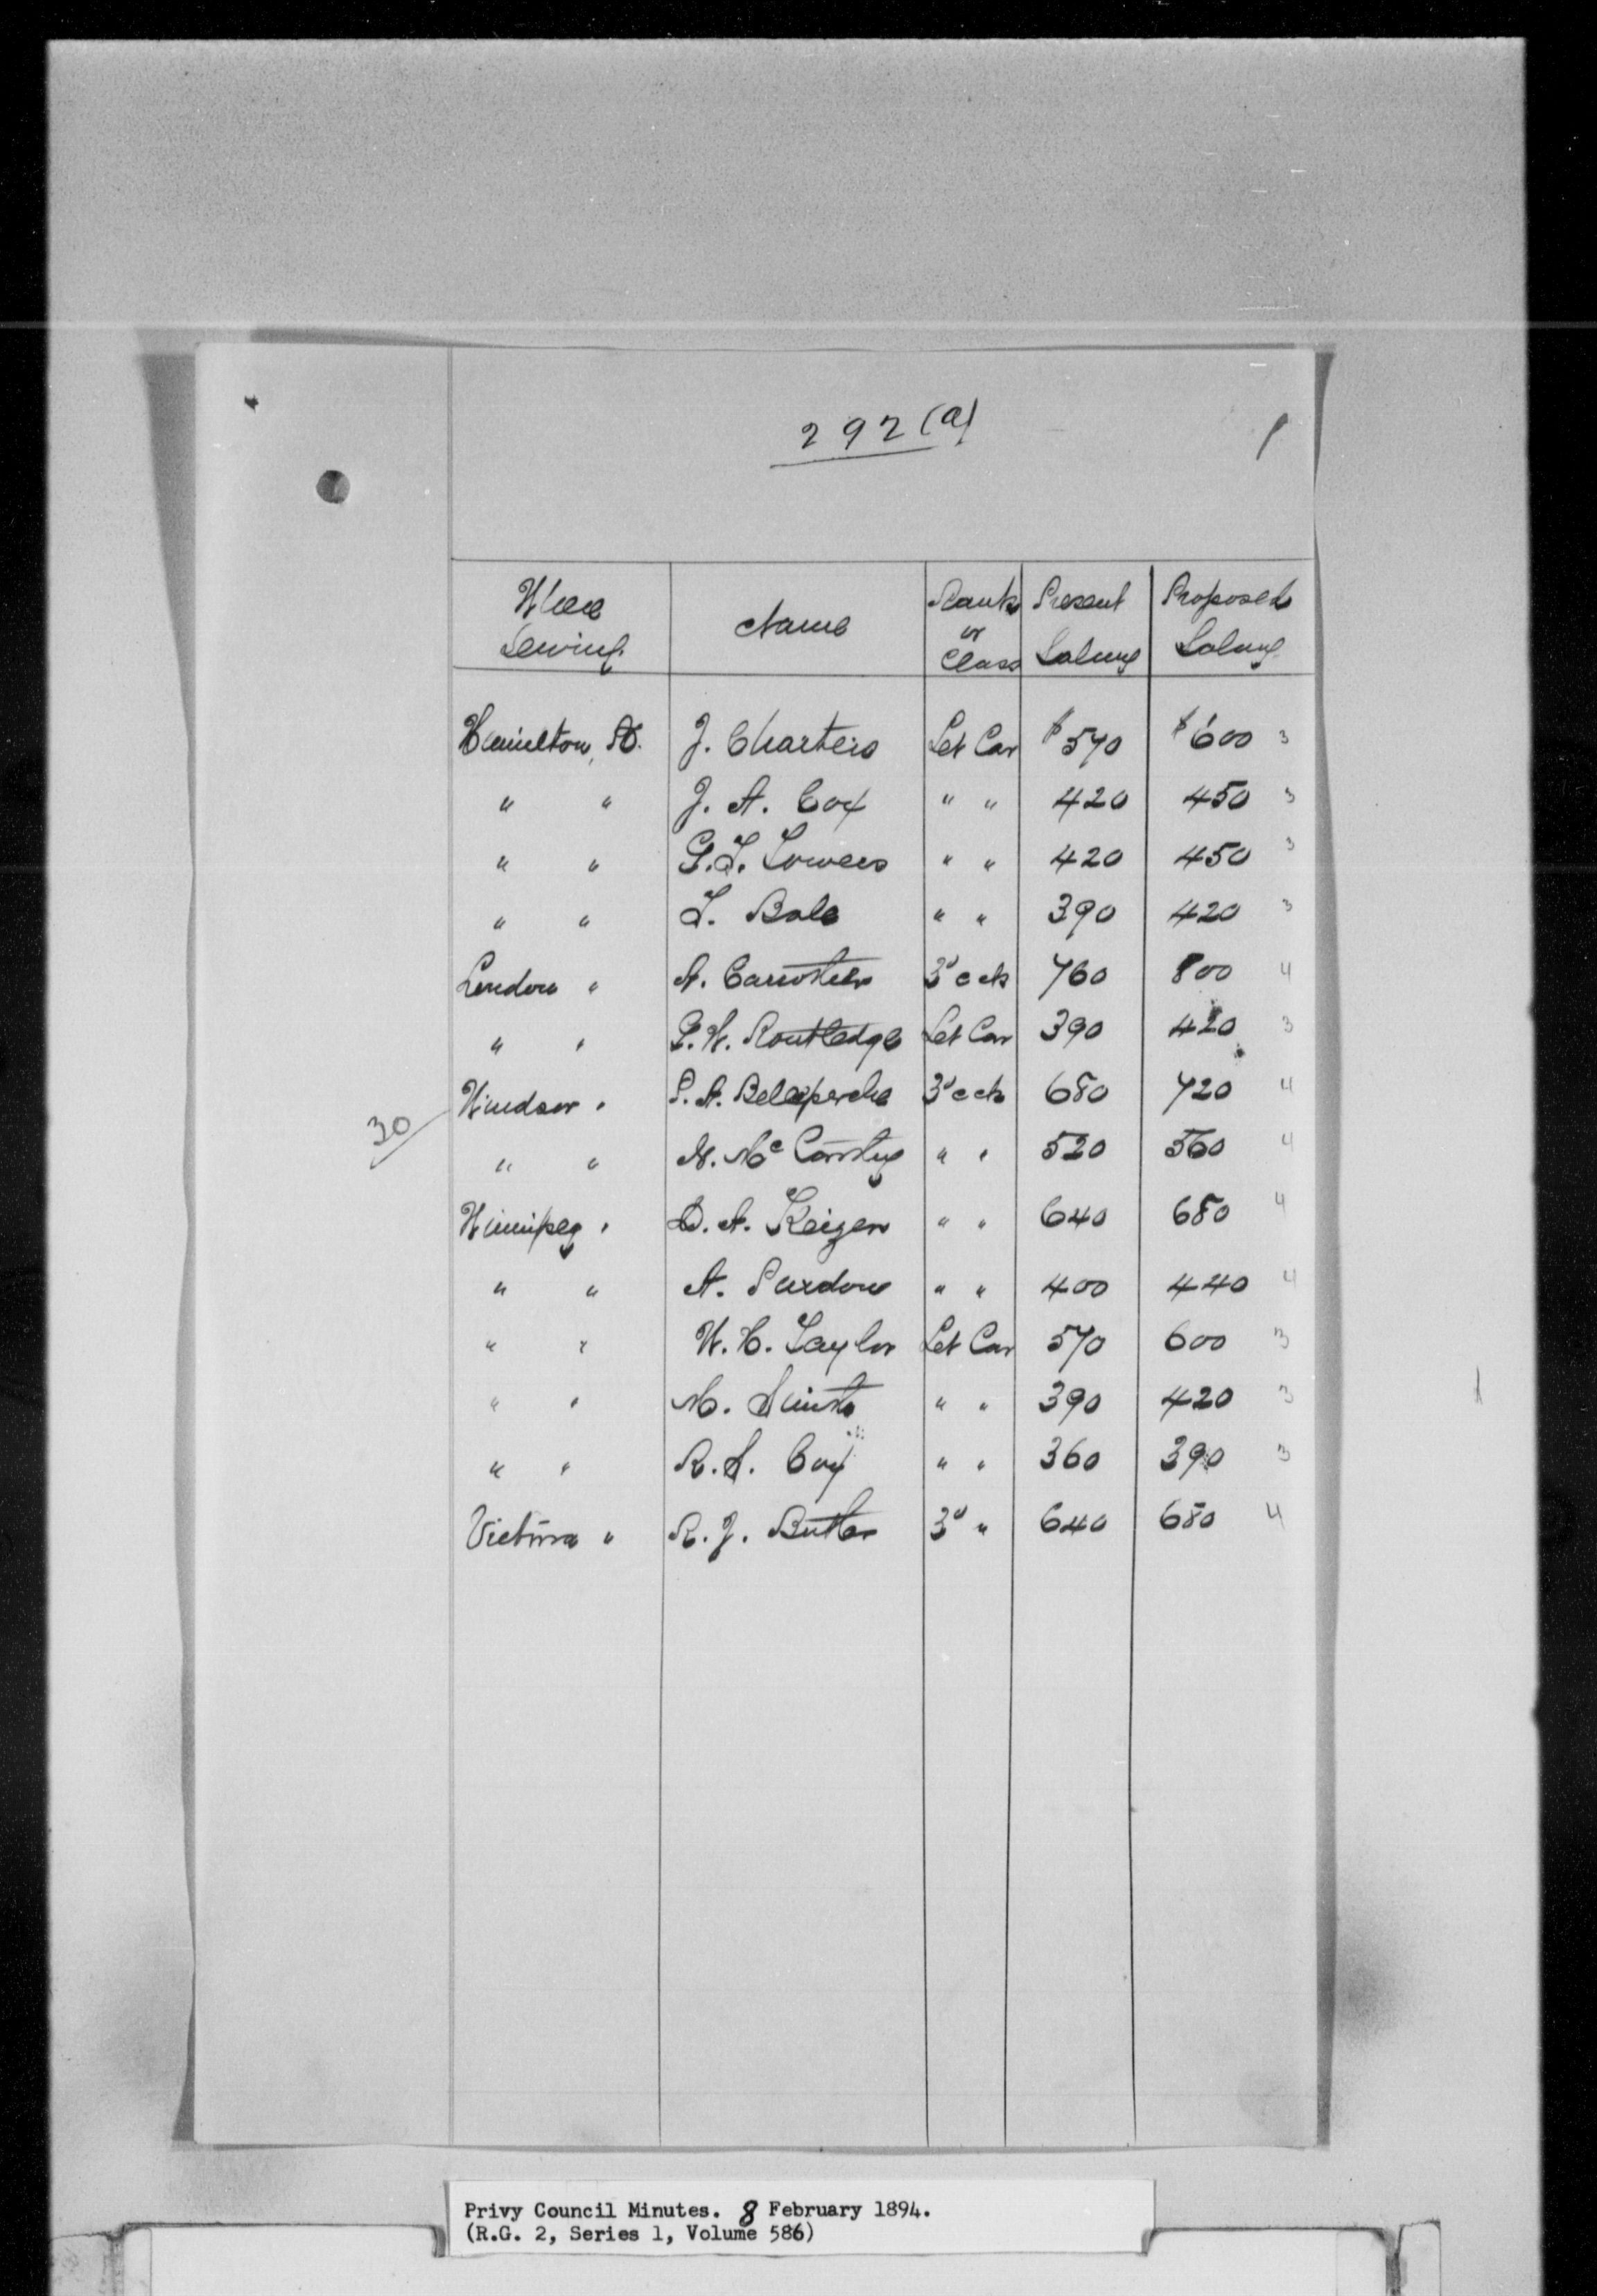 292(a)
Where Serving | Name | Rank or Class | Present Salary | Proposed Salary
Hamilton, P.O. | J. Charters | Let Car | $570 | $600 3
" " | J. A. Cox | " " | 420 | 450 3
" " | G. T. Lowees | " " | 420 | 450 3
" " | T. Bale | " " | 390 | 420 3
London " | A. Carrothers | 3d cck | 760 | 800 4
" " | G. W. Routledge | Let Car | 390 | 420 3
30 Windsor " | P. A. Belleperche | 3d cck | 680 | 720 4
" " | N. McCarthy | " " | 520 | 560 4
Winnipeg " | D. A. Keizer | " " | 640 | 680 4
" " | A. Purdon | " " | 400 | 440 4
" " | W. H. Taylor | Let Car | 570 | 600 3
" " | M. | " " | 390 | 420 3
" " | R. S. Cox | " " | 360 | 390 3
Victoria " | R. J. Butler | 3d " | 640 | 680 4
Privy Council Minutes. 8 February 1894.
(R.G. 2, Series 1, Volume 586)